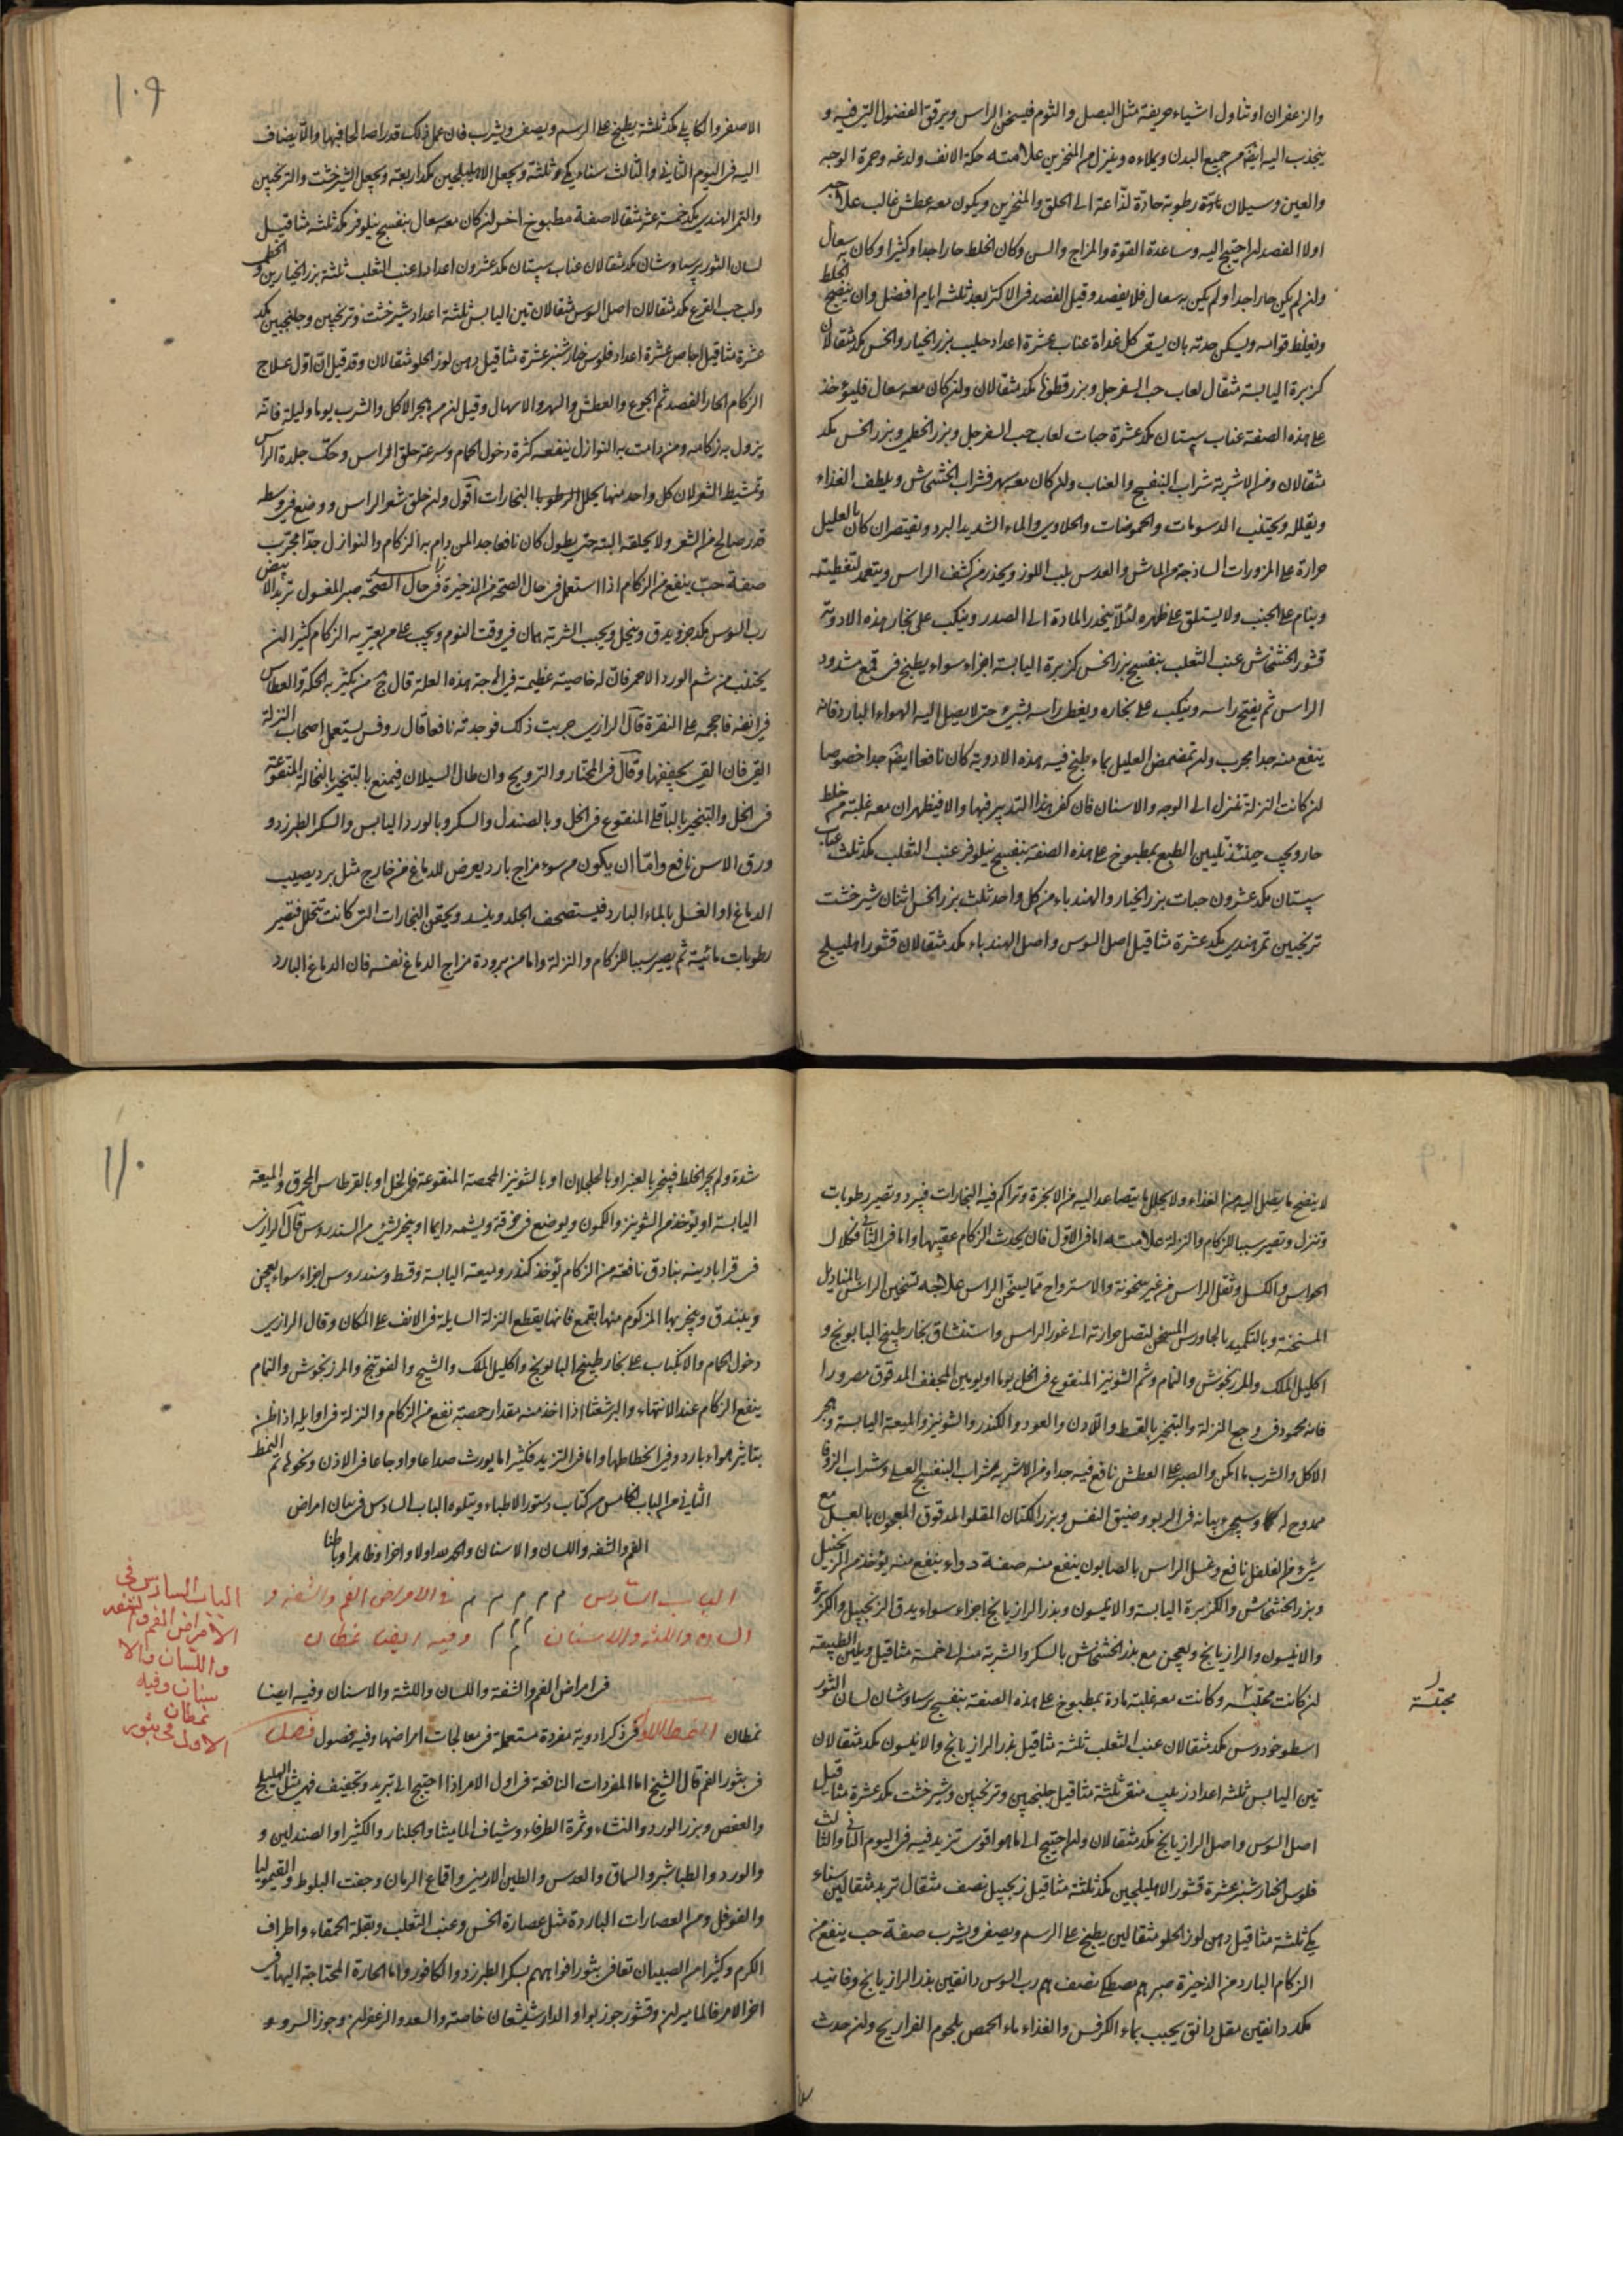 والزعفران او تناول اشياء حريفة مثل البصل والثوم فيسخن الراس ويرقق الفضول التى فيه و
ينجذب اليه ايضا من جميع البدن ويملاءه وينزل من المنخرين علامته حكة الانف ولدغه وحمرة الوجه
والعين وسيلان مادة رطوبة حادة لذاعة الى الحلق والمنخرين ويكون معه عطش غالب علاجه
اولا الفصد ان احتيج اليه وساعدة القوة والمزاج والسن وكان الخلط حارا جدا وكثيرا وكان به سعال
وان لم يكن حارا جدا ولم يكن به سعال فلا يفصد وقيل الفصد فى الاكثر بعد ثلثه ايام افضل وان ينضج الخلط
ويغلظ قوامه ويسكن حدته بان يسقى كل غداة عناب عشرة اعداد حليب بزر الخيار والخس مكد مثقالان
كزبرة اليابسة مثقال لعاب حب السفرجل وبزر قطونا مكد مثقالان وان كان معه سعال فليؤخذ
على هذه الصفة عناب سپستان مكد عشرة حبات لعاب حب السفرجل وبزر الخطمى وبزر الخس مكد
مثقالان ومن الاشربة شراب البنفسج والعناب وان كان معه سهر فشراب الخشخاش ويلطف الغذاء
ويقلله ويجتنب الدسومات والحموضات والحلاوى والماء الشديد البرد ويقتصر ان كان بالعليل
حرارة على المزورات الساذجة من الماش والعدس بلب اللوز ويحذر من كشف الراس ويتعمد لتغطيته
وينام على الجنب ولا يستلق على ظهره لئلا ينحدر المادة الى الصدر وينكب على بخار هذه الادوية
قشور الخشخاش عنب الثعلب بنفسج بزر الخس كزبرة اليابسة اجزاء سواء يطبخ فى قمع مشدود
الراس ثم يفتح راسه وينكب على بخاره ويغطى راسه بشىء حتى لا يصل اليه الهواء البارد فانه
ينفع منه جدا مجرب وان تمضمض العليل بماء طبخ فيه هذه الادوية كان نافعا ايضا جدا خصوصا
ان كانت النزلة تنزل الى الوجه والاسنان فان كفى هذا التدبير فبها والا فيظهر ان معه غلبة من خلط
حار ويجب حينئذ تليين الطبع بمطبوخ على هذه الصفة بنفسج نيلوفر عنب الثعلب مكد ثلث عناب
سپستان مكد عشرون حبات بزر الخيار والهندباء من كل واحد ثلث بزر الخس اثنان شيرخشت
ترنجبين تمر هندى مكد عشرة مثاقيل اصل السوس واصل الهندباء مكد مثقالان قشور اهليلج
١٠٩
الاصفر والكابلى مكد ثلثة يطبخ على الرسم ويصفى ويشرب فان عمل ذلك قدرا صالحا فبها والا يضاف
اليه فى اليوم الثانى والثالث سناء مكى ثلثة ويجعل الاهليلجين مكد اربعة ويجعل الشيرخشت والترنجبين
والتمر الهندى مكد خمسة عشر مثقالا صفة مطبوخ اخر ان كان معه سعال بنفسج نيلوفر مكد ثلثه مثاقيل
لسان الثور پرسياوشان مكد مثقالان عناب سپستان مكد عشرون اعداد عنب الثعلب ثلثة بزر الخيارين والخطمى
ولب حب القرع مكد مثقالان اصل السوس مثقالان تين اليابس ثلثة اعداد شيرخشت وترنجبين وجلنجبين مكد
عشرة مثاقيل اجاص عشرة اعداد فلوس خيارشنبر عشرة مثاقيل دهن لوز الحلو مثقالان وقد قيل ان اول علاج
الزكام الحار الفصد ثم الجوع والعطش والسهر والاسهال وقيل ان من هجر الاكل والشرب يوما وليلة فانه
يزول به زكامه ومن دامت به النوازل ينفعه كثرة دخول الحمام وسرعة حلق الراس وحك جلدة الراس
وتمشيط الشعر لان كل واحد منها يحلل الرطوبا البخارات اقول وان حلق شعر الراس ووضع فى وسطه
قدر صالح من الشعر ولا يحلقه البته حتى يطول كان نافعا جدا لمن دام به الزكام والنوازل جدا مجرب
صفة حب ينفع من الزكام اذا استعمل فى حال الصحة من الذخيرة فى حال الصحة صبر المغسول تربد الابيض
رب السوس مكد جزو يدق وينخل ويحبب الشربة درهمان فى وقت النوم ويجب على من يعتريه الزكام كثيرا ان
يجتنب من شم الورد الاحمر فان له خاصية عظيمة فى اهاجة هذه العلة قال ج من يكثر به الحكة والعطاس
فى انفه فاحجمه على النقرة قال الرازى جربت ذلك فوجدته نافعا قال روفس يستعمل اصحاب النزلة
القى فان القى يجففها وقال فى المختار والترويح وان طال السيلان فيمنع بالتبخير بالنخالة المنقوعة
فى الخل والتبخير بالباقلى المنقوع فى الخل وبالصندل والسكر وبالورد اليابس والسكر الطبرزد و
ورق الاس نافع واما ان يكون من سوء مزاج بارد يعرض للدماغ من خارج مثل برد يصيب
الدماغ او الغسل بالماء البارد فيستصحف الجلد وينسد ويحقن البخارات التى كانت تتحلل فتصير
رطوبات مائية ثم يصير سببا للزكام والنزلة واما من برودة مزاج الدماغ نفسه فان الدماغ البارد
لا ينضج ما يصل اليه من الغذاء ولا يحلل ما يتصاعد اليه من الابخرة وتراكم فيه البخارات فيبرد وتصير رطوبات
وتنزل وتصير سببا للزكام والنزلة علامته اما فى الاول فان يحدث الزكام عقيبها واما فى الثانى فكلال
الحواس والكسل وثقل الراس من غير سخونة والاسترواح مما يسخن الراس علاجه تسخين الراس بالمناديل
المسخنة وبالتكميد بالجاورس المسخن لتصل حرارته الى غور الراس واستنشاق بخار طبيخ البابونج و
اكليل الملك والمرزنجوش والنمام وشم الشونيز المنقوع فى الخل يوما او يومين المجفف المدقوق مصرورا
فانه محمود فى وجع النزلة والتبخير بالقسط واللادن والعود والكندر والشونيز والميعة اليابسة وهجر
الاكل والشرب ما امكن والصبر على العطش نافع فيه جدا ومن الاشربة شراب البنفسج العسلى وشراب الزوفا
ممدوح له كما وسيجىء بيانه فى الربو وضيق النفس وبزر الكتان المقلو المدقوق المعجون بالعسل مع
شىء من الفلفل نافع وغسل الراس بالصابون ينفع منه صفة دواء ينفع منه يؤخذ من الزنجبيل
وبزر الخشخاش والكزبرة اليابسة والانيسون وبذر الرازيانج اجزاء سواء يدق الزنجبيل والكزبرة
والانيسون والرازيانج ويعجن مع بذر الخشخاش بالسكر والشربة منه الى خمسة مثاقيل ويلين الطبيعة
ان كانت محتبسة وكانت معه غلبة مادة بمطبوخ على هذه الصفة بنفسج پرسياوشان لسان الثور
محتبسة
اسطوخودوس مكد مثقالان عنب الثعلب ثلثة مثاقيل بذر الرازيانج والانيسون مكد مثقالان
تين اليابس ثلثه اعداد زبيب منقى ثلثة مثاقيل جلنجبين وترنجبين وشيرخشت مكد عشرة مثاقيل
اصل السوس واصل الرازيانج مكد مثقالان وان احتيج الى ما هو اقوى تزيد فيه فى اليوم الثانى والثالث
فلوس الخيارشنبر عشرة قشور الاهليلجين مكد ثلثة مثاقيل زنجبيل نصف مثقال تربد مثقالين سناء
مكى ثلثة مثاقيل دهن لوز الحلو مثقالين يطبخ على الرسم ويصفى ويشرب صفة حب ينفع من
الزكام البارد من الذخيرة صبر درهم مصطكى نصف درهم رب السوس دانقين بذر الرازيانج وفانيد
مكد دانقين مقل دانق يحبب بماء الكرفس والغذاء ماء الحمص بلحوم الفراريج وان حدث
١١٠
شدة ولم يجر الخلط فيبخر بالعنبر او بالجلجلان او بالشونيز المحمصة المنقوعة فى الخل او بالقرطاس المحرق والميعة
اليابسة او يؤخذ من الشونيز والكمون ويوضع فى خرقة ويشمه دايما او يبخر بشىء من السندروس قال الرازى
فى قرابادينه بنادق نافعة من الزكام يؤخذ كندر وميعة اليابسة وقسط وسندروس اجزاء سواء يعجن
ويبندق ويبخر بها المزكوم منها بقمع فانها يقطع النزلة السايلة فى الانف على المكان وقال الرازى
دخول الحمام والانكباب على بخار طبيخ البابونج واكليل الملك والشيح والفوتنج والمرزنجوش والنمام
ينفع الزكام عند الانتهاء والبرشعثا اذا اخذ منه مقدار حمصة نفع من الزكام والنزلة فى اوايله اذا ظن
بتاثير هواء بارد وفى انحطاطها واما فى التزيد فكثيرا ما يورث صداعا واوجاعا فى الاذن ونحوها تم النمط
الثانى من الباب الخامس من كتاب دستور الاطباء ويتلوه الباب السادس فى بيان امراض
الفم والشفه واللسان والاسنان والحمد لله اولا واخرا وظاهرا وباطنا
الباب السادس فى الامراض الفم والشفه و
اللسان واللثه والاسنان وفيه ايضا نمطان
الباب السادس فى
الامراض الفم والشفه
واللسان والا
سنان وفيه
نمطان
الاول فى بثور
فى امراض الفم والشفة واللسان واللثة والاسنان وفيه ايضا
نمطان النمط الاول فى ذكر ادوية مفردة مستعملة فى معالجات امراضها وفيه فصول فصل
فى بثور الفم قال الشيخ اما المفردات النافعة فى اول الامر اذا احتيج الى تبريد وتجفيف فهى مثل الهليلج
والعفص وبزر الورد والنشاء وثمرة الطرفاء وشياف الماميثا والجلنار والكثيرا والصندلين و
والورد والطباشير والسماق والعدس والطين الارمنى واقماع الرمان وجفت البلوط والقيموليا
والفوفل ومن العصارات الباردة مثل عصارة الخس وعنب الثعلب وبقلة الحمقاء واطراف
الكرم وكثيرا من الصبيان تعافى بثور افواههم بسكر الطبرزد والكافور واما الحارة المحتاجة اليها فى
اخر الامر فالماميران وقشور جوز بوا والدارشيشعان خاصة والسعد والزعفران وجوز السرو و